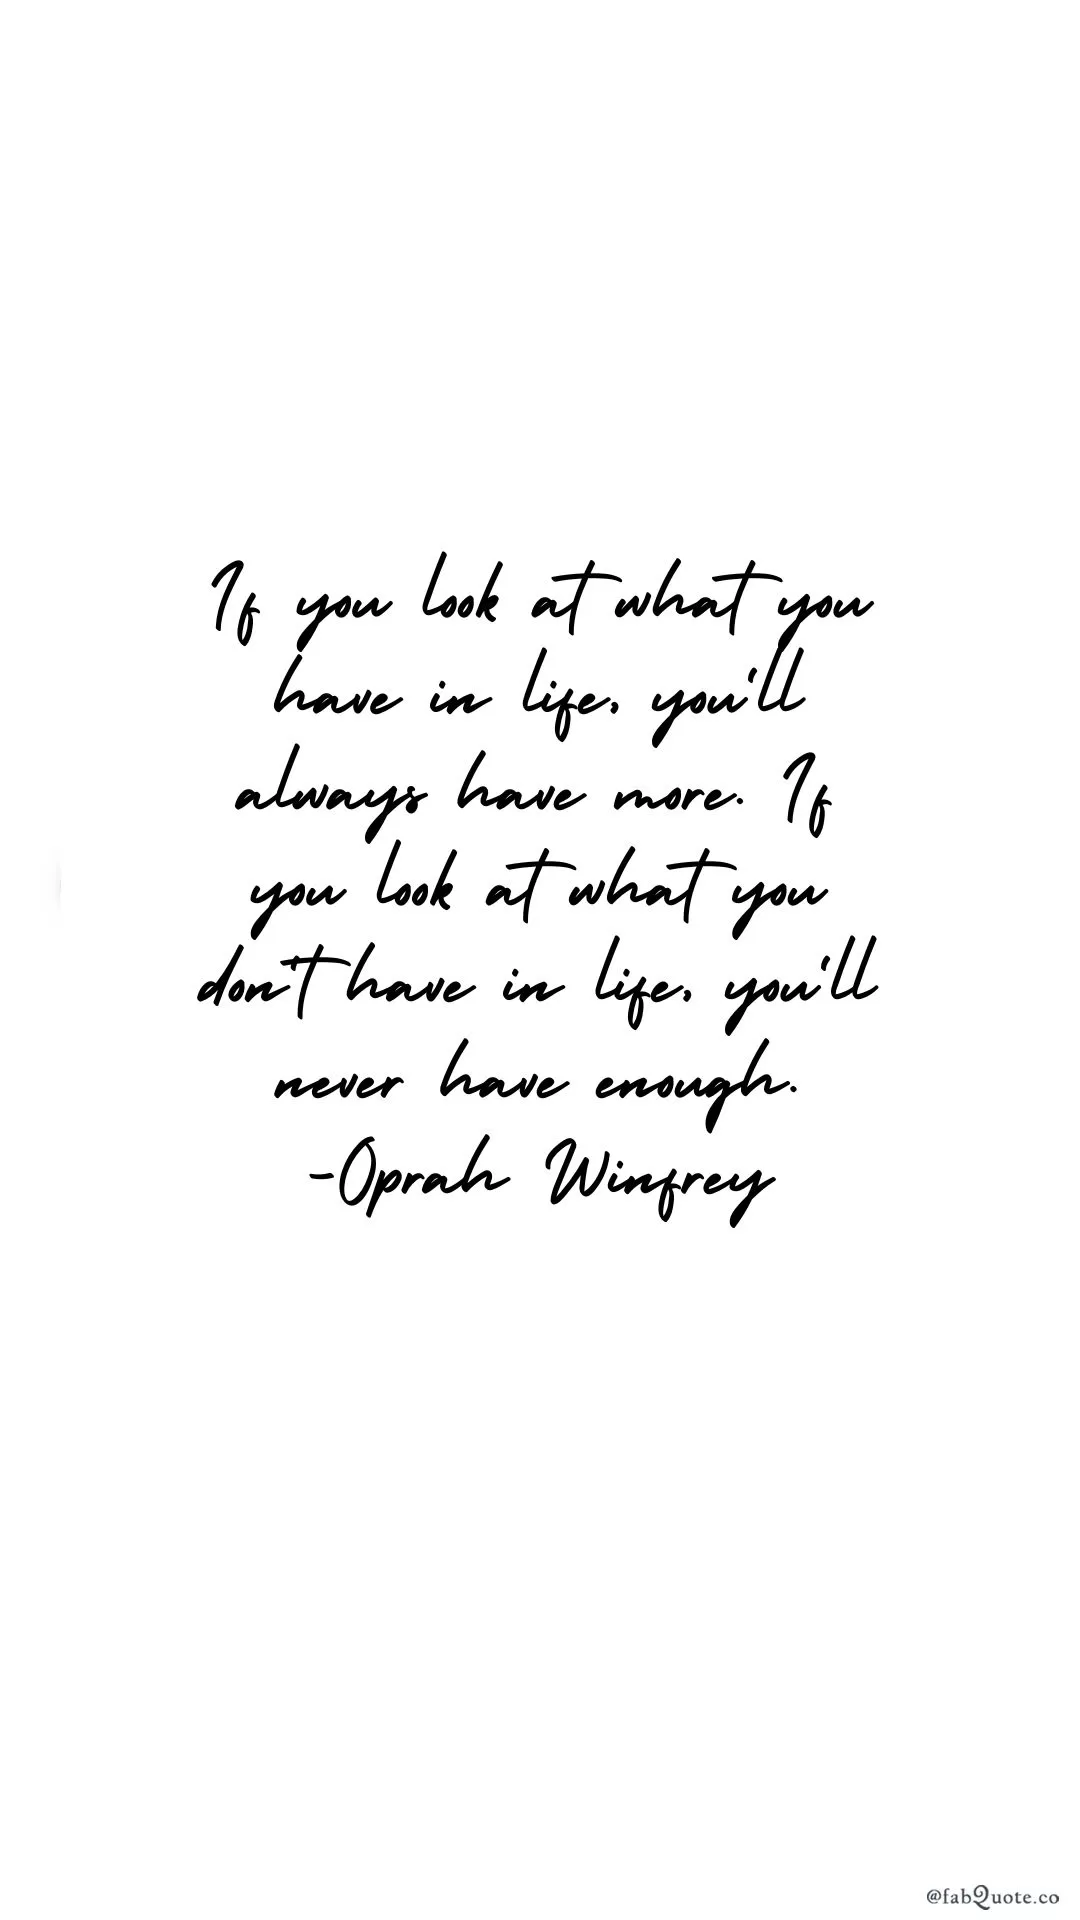 If you look at what you
have in life, you'll
always have more. If
you look at what you
don't have in life, you'll
never have enough.
-Oprah Winfrey
@fabQuote.co